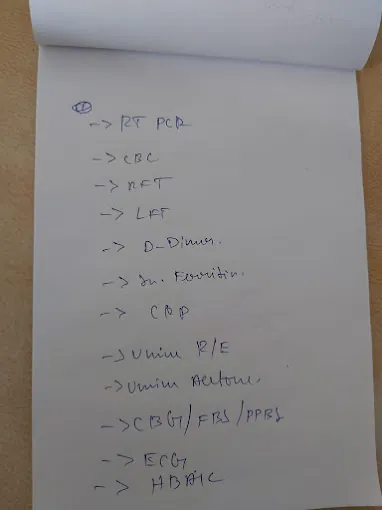 -> RT PCR
-> CBC
-> RFT
-> LFT
-> D-Dimer.
-> Sr. Ferritin.
-> CRP
-> Urine R/E
-> Urine Acetone.
-> CBG/FBS/PPBS
-> ECG
-> HBA1C